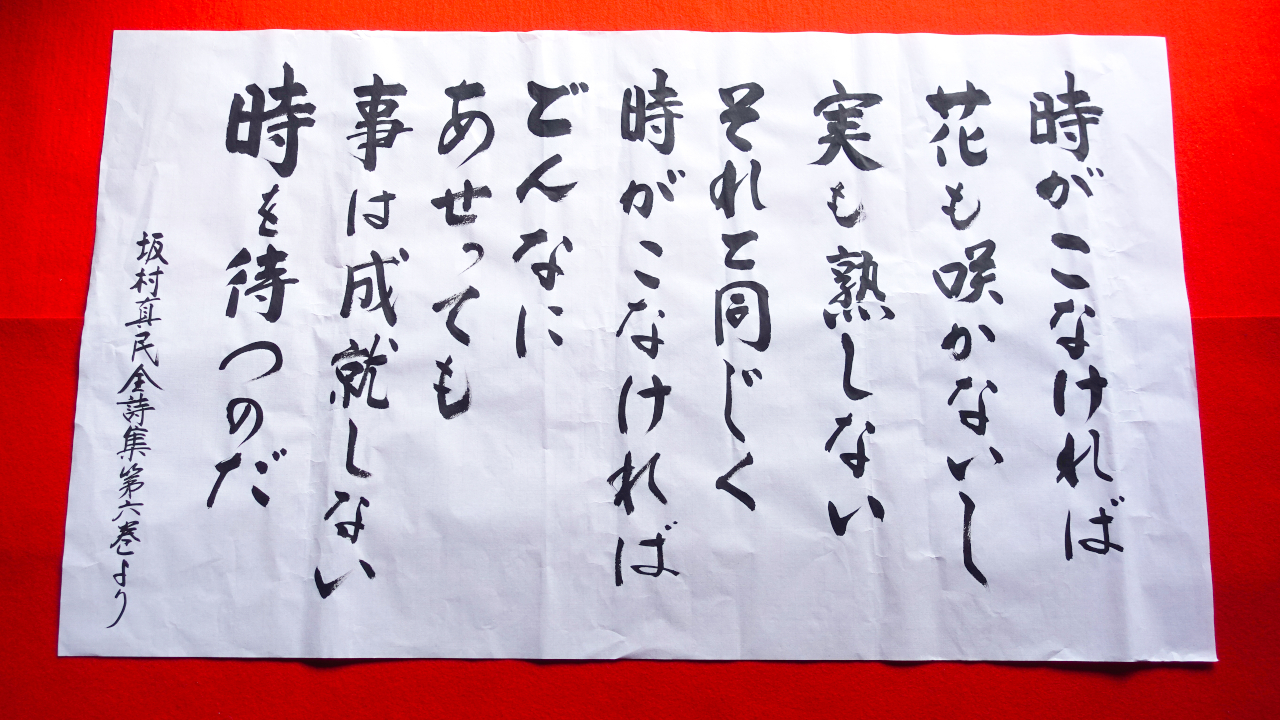 時がこなければ
花も咲かないし
実も熟しない
それと同じく
時がこなければ
どんなに
あせっても
事は成就しない
時を待つのだ
坂村真民全詩集第六巻より